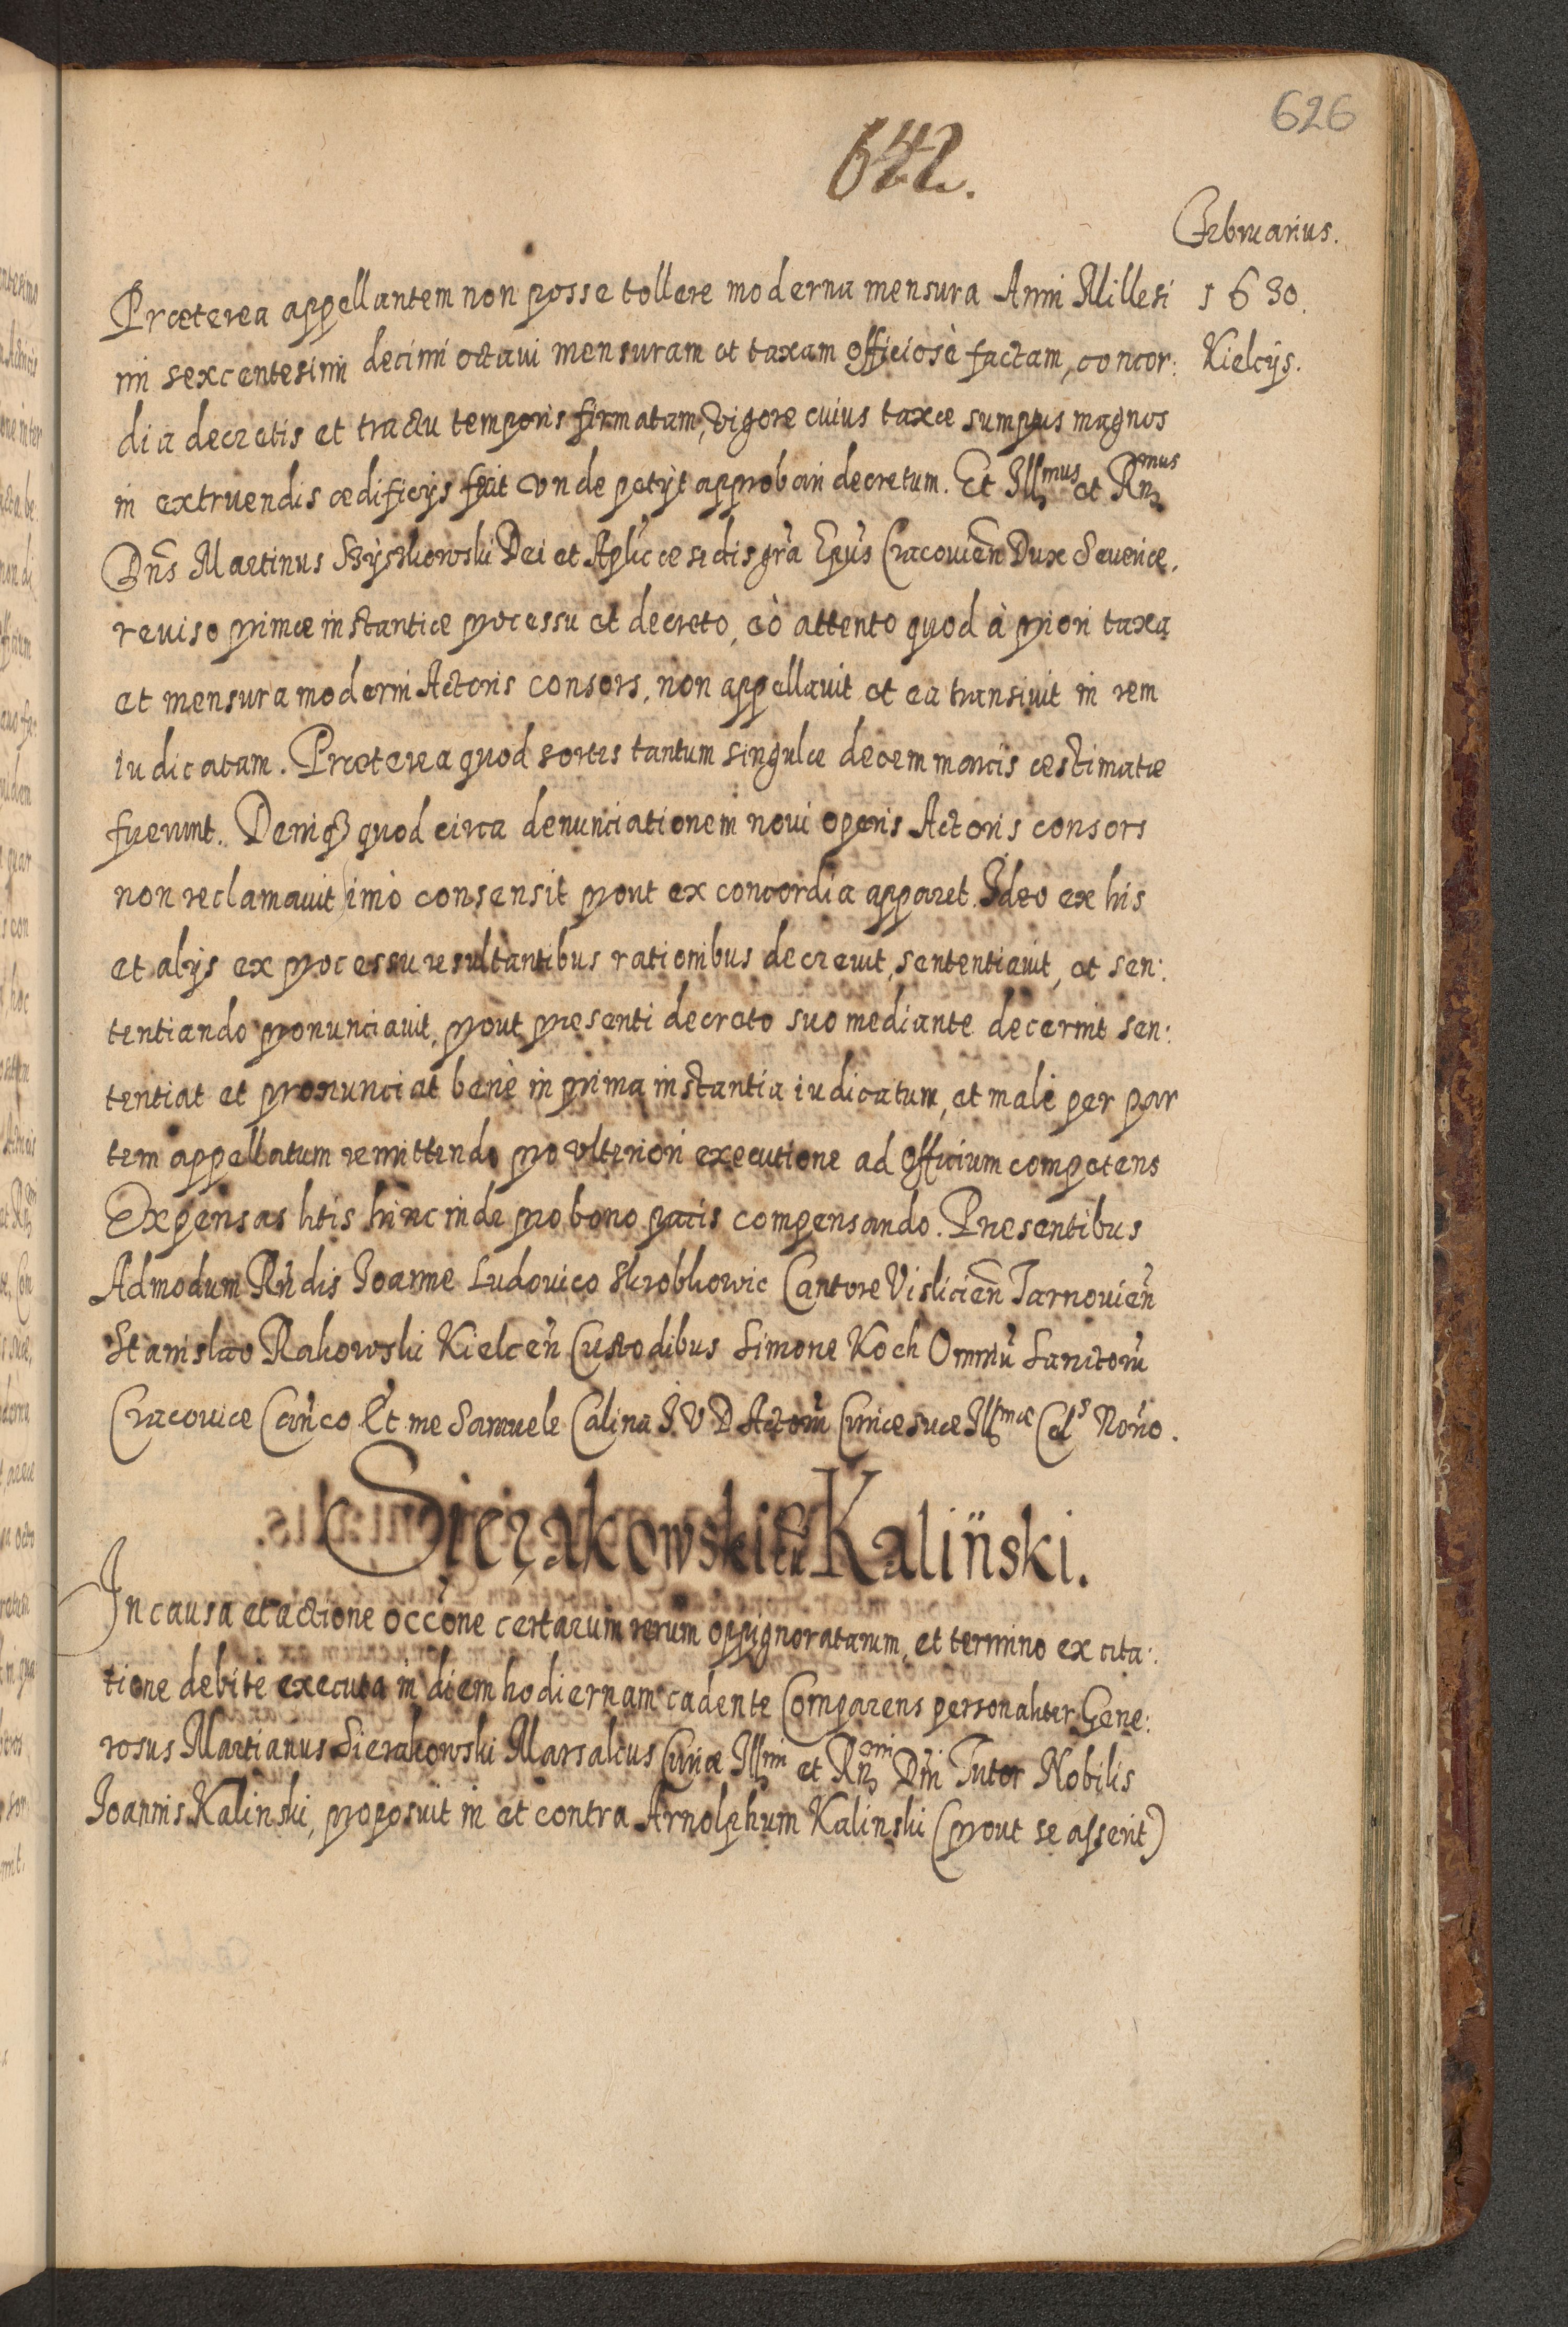 626
642.
Februarius.
Præterea appellantem non posse tollere moderna mensura Anni Millesi
1630.
mi sexcentesimi decimi octaui mensuram et taxam officiosè factam, concor:
Kielcijs.
dia decretis et tractu temporis firmatam, vigore cuius taxæ sumptus magnos
in extruendis ædificijs fecit vnde petijt approbari decretum. Et Illmus et Rmus
Dns Martinus Szyszkowski Dei et Aplicæ sedis gra Epus Cracouien Dux Seueriæ.
reuiso primæ instantiæ processu et decreto, eò attento quod à priori taxa
et mensura moderni Actoris consors, non appellauit et ea transiuit in rem
iudicatam. Præterea quod sortes tantum singulæ decem marcis æstimatæ
fuerunt. Deniq quod circa denunciationem noui operis Actoris consors
non reclamauit imò consensit prout ex concordia apparet. Ideo ex his
et alijs ex processu resultantibus rationibus decreuit, sententiauit, et sen:
tentiando pronunciauit, prout præsenti decreto suo mediante decernit sen:
tentiat et pronunciat benè in prima instantia iudicatum, et malè per par
tem appellatum remittendo pro vlteriori executione ad Officium competens
Expensas litis hinc inde pro bono pacis compensando. Præsentibus
Admodum Rndis Joanne Ludouico Skrobkowic Cantore Vislicien Tarnouien
Stanislao Rakowski Kielcen Custodibus Simone Koch Omniu Sanctoru
Cracouiæ Canco Et me Samuele Calina J V D Actoru Curiæ suæ Illmæ Cels Norio.
Sierakowski cu Kaliński.
In causa et actione occone certarum rerum oppignoratarum, et termino ex cita:
tione debite executa in diem hodiernam cadente Comparens personaliter Gene:
rosus Martianus Sierakowski Marsalcus Curiæ Illmi et Rmi Dni Tutor Nobilis
Joannis Kalinski, proposuit in et contra Arnolphum Kalinski (prout se asserit)